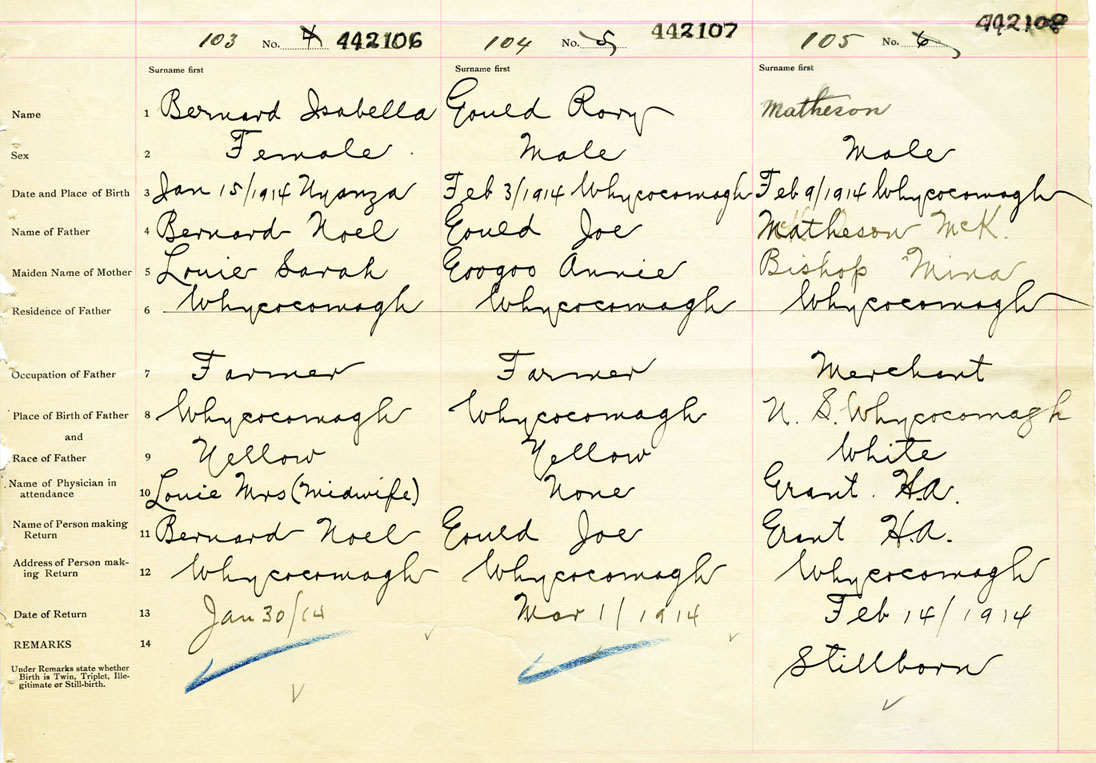 103 No. 4 442106 104 No. 5 442107 105 No. 6 442108
Surname first Surname first Surname first
Name 1 Bernard Isabella Gould Rory Matheson
Sex 2 Female Male Male
Date and Place of Birth 3 Jan 15/1914 Nyanza Feb 3/1914 Whycocomagh Feb 9/1914 Whycocomagh
Name of Father 4 Bernard Noel Gould Joe Matheson McK.
Maiden Name of Mother 5 Louie Sarah Googoo Annie Bishop Mina
Residence of Father 6 Whycocomagh Whycocomagh Whycocomagh
Occupation of Father 7 Farmer Farmer Merchant
Place of Birth of Father 8 Whycocomagh Whycocomagh N. S. Whycocomagh
and
Race of Father 9 Yellow Yellow White
Name of Physician in
attendance 10 Louie Mrs (Midwife) None Grant H.A.
Name of Person making
Return 11 Bernard Noel Gould Joe Grant H.A.
Address of Person mak-
ing Return 12 Whycocomagh Whycocomagh Whycocomagh
Date of Return 13 Jan 30/14 Mar 1/1914 Feb 14/1914
REMARKS 14
Under Remarks state whether
Birth is Twin, Triplet, Ille-
gitimate or Still-birth.
Stillborn